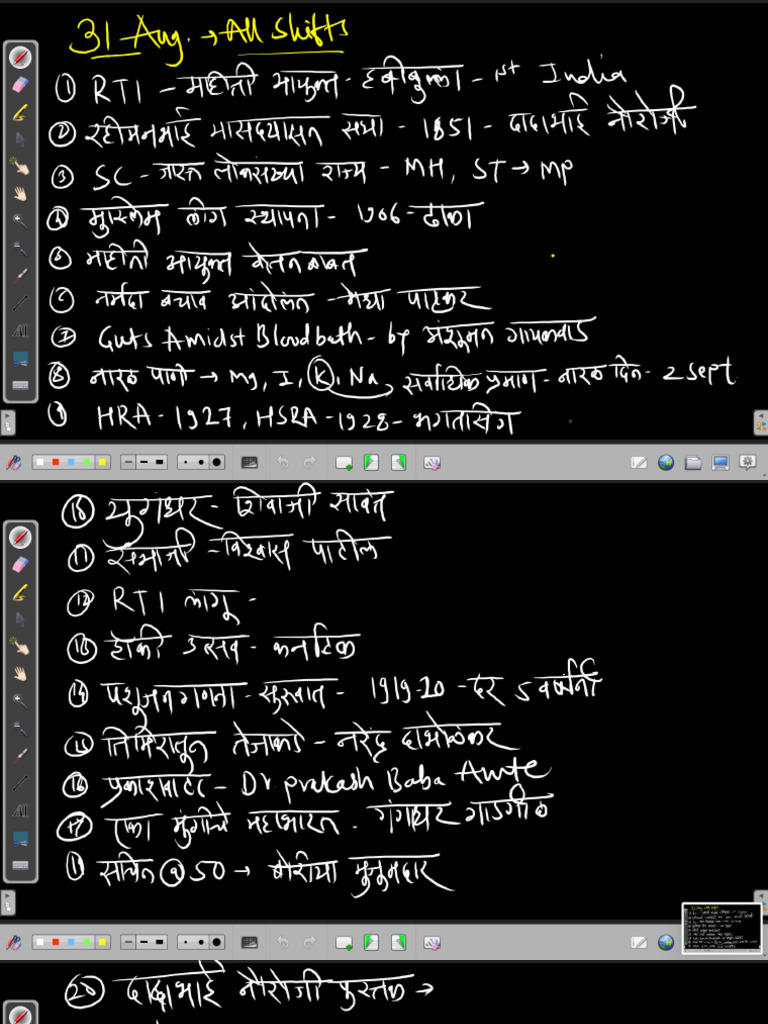 31 Aug. → All Shifts
① RTI - माहीती आयुक्त - हबीबुल्ला - 1st India
② रहीमनमाई मासदयासन सभा - 1851 - दादाभाई नौरोजी
③ SC - जास्त लोकसंख्या राज्य - MH, ST → MP
④ मुस्लिम लीग स्थापना - 1906 - ढाका
⑤ माहीती आयुक्त वेतन बाबत
⑥ नर्मदा बचाव आंदोलन - मेधा पाटकर
⑦ Guts Amidst Bloodbath - by अंशुमन गायकवाड
⑧ नारळ पाणी → Mg, I, K, Na, सर्वाधिक प्रमाण - नारळ दिन - 2 Sept
⑨ HRA - 1927, HSRA - 1928 - भगतसिंग
⑩ युगंधर - शिवाजी सावंत
⑪ संभाजी - विश्वास पाटील
⑫ RTI लागू -
⑬ होकी उत्सव - कर्नाटक
⑭ पशूजनगणना - सुरुवात - 1919-20 - दर 5 वर्षांनी
⑮ तिमिरातून तेजाकडे - नरेंद्र दाभोळकर
⑯ प्रकाशवाटा - Dr. Prakash Baba Amte
⑰ एका मुंगीचे महाभारत - गंगाधर गाडगीळ
⑱ सचिन @ 50 → बोरीया मुजुमदार
⑳ दादाभाई नौरोजी पुस्तक →